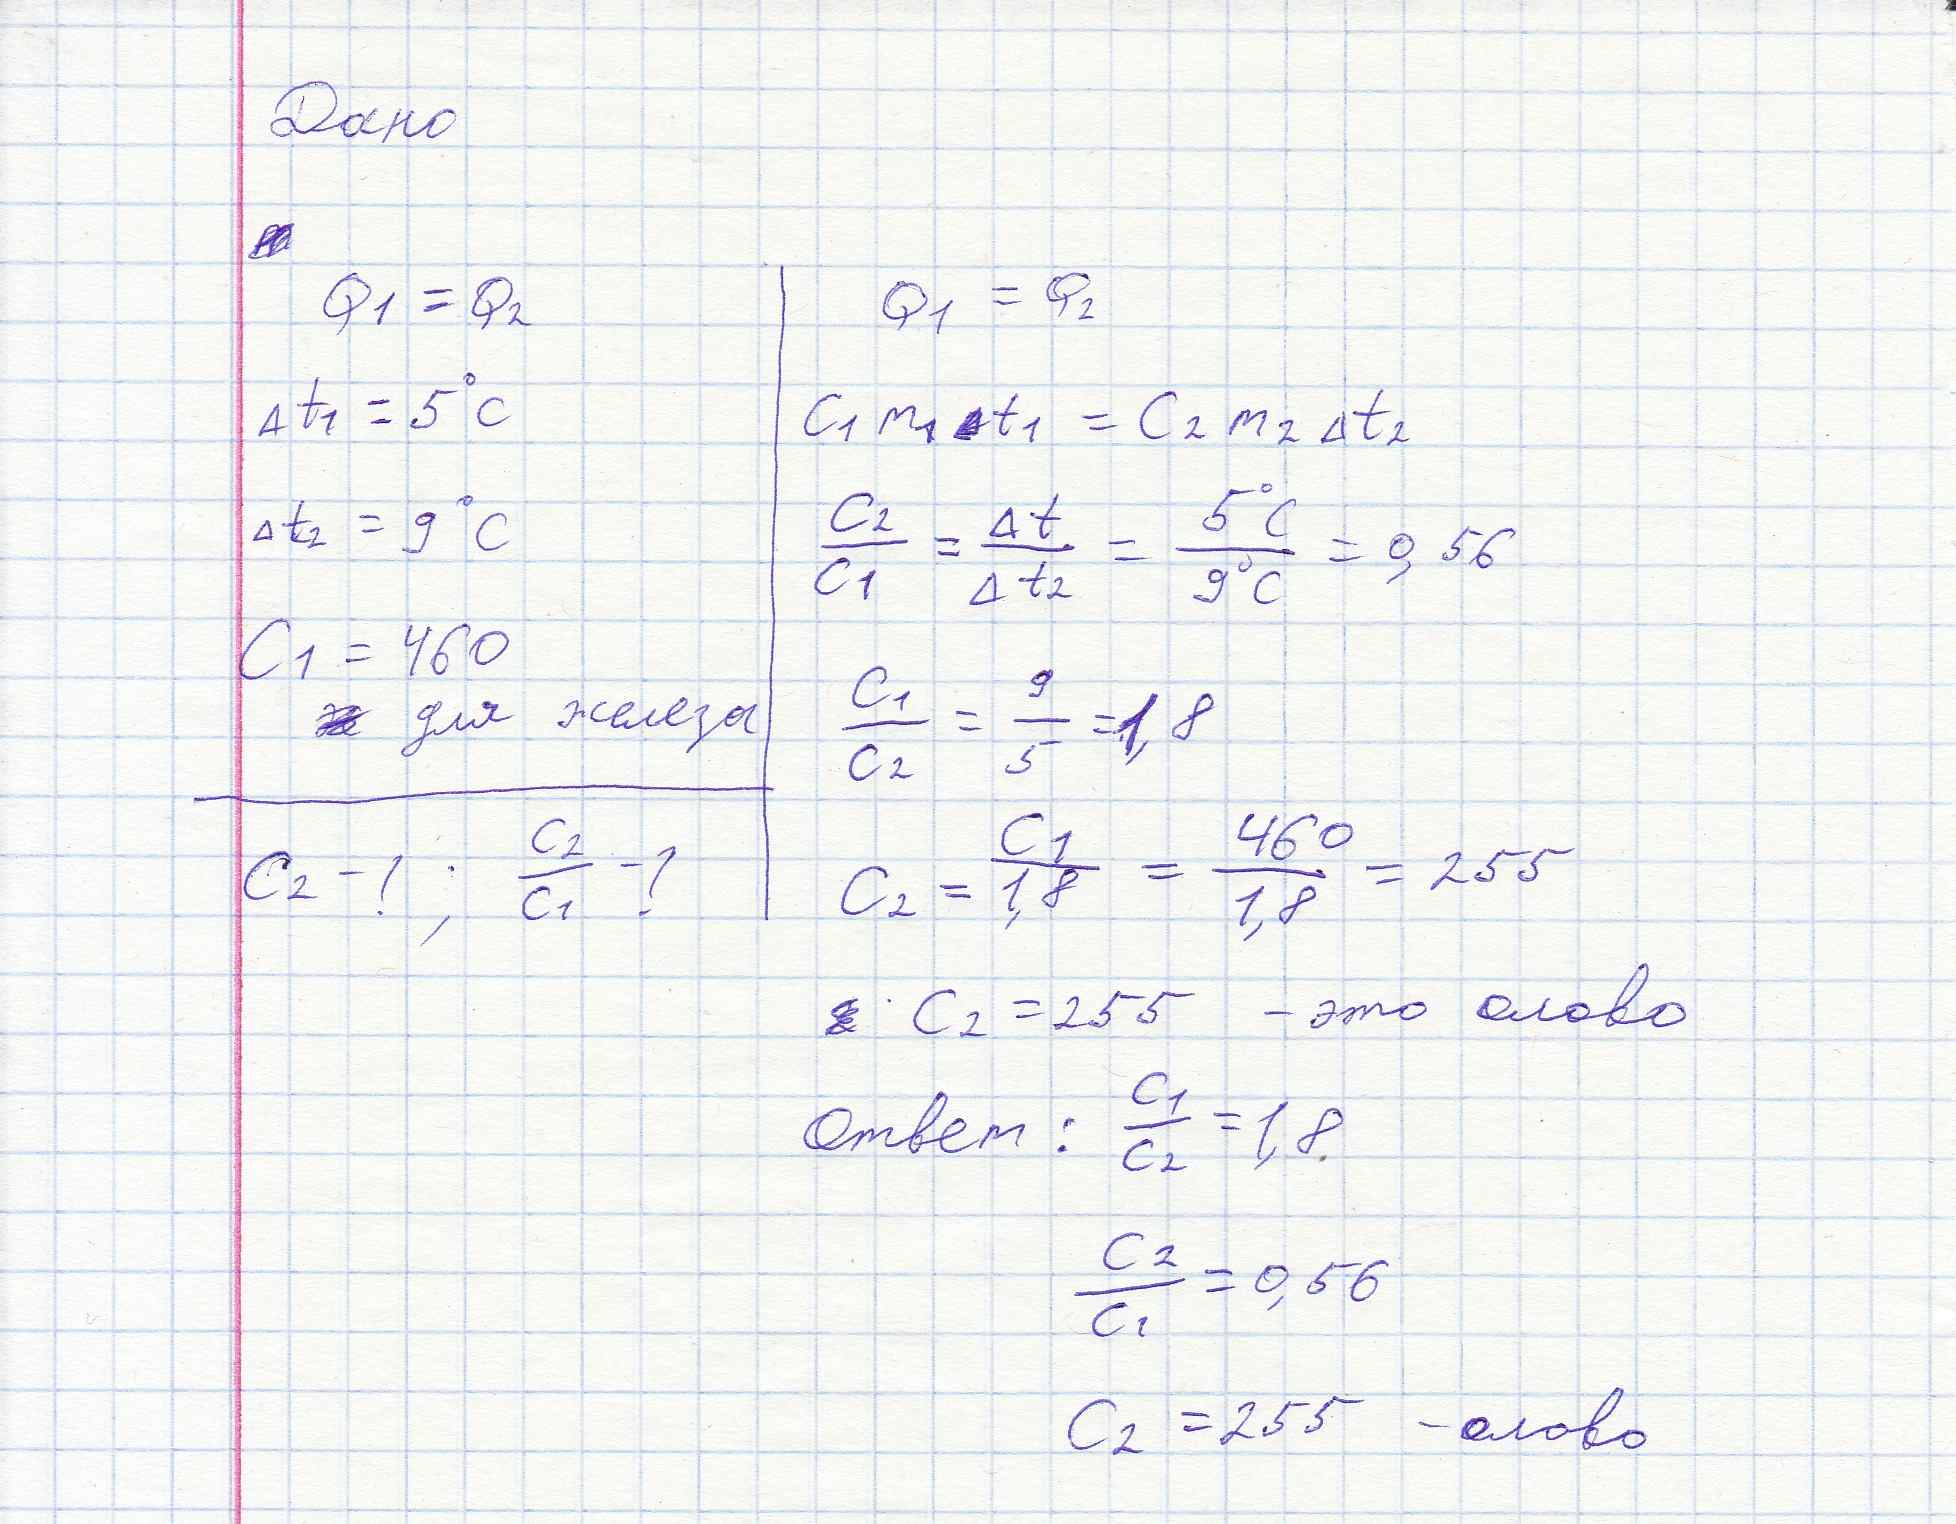 Дано
Q1 = Q2
Δt1 = 5°C
Δt2 = 9°C
C1 = 460
для железа
C2 - ? ; C2/C1 - ?
Q1 = Q2
C1 m1 Δt1 = C2 m2 Δt2
C2/C1 = Δt/Δt2 = 5°C/9°C = 0,56
C1/C2 = 9/5 = 1,8
C2 = C1/1,8 = 460/1,8 = 255
C2 = 255 - это олово
Ответ : C1/C2 = 1,8.
C2/C1 = 0,56
C2 = 255 - олово